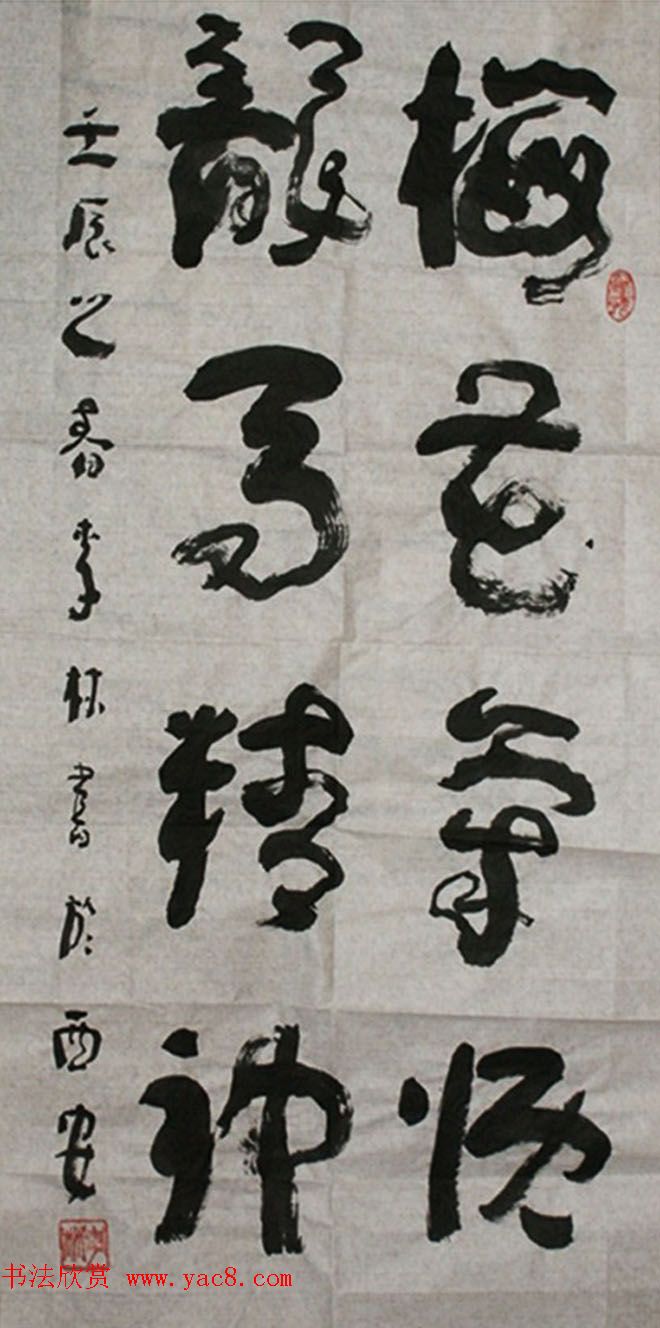 梅花氣慨
龍馬精神
壬辰之春李林書於西安
书法欣赏 www.yac8.com